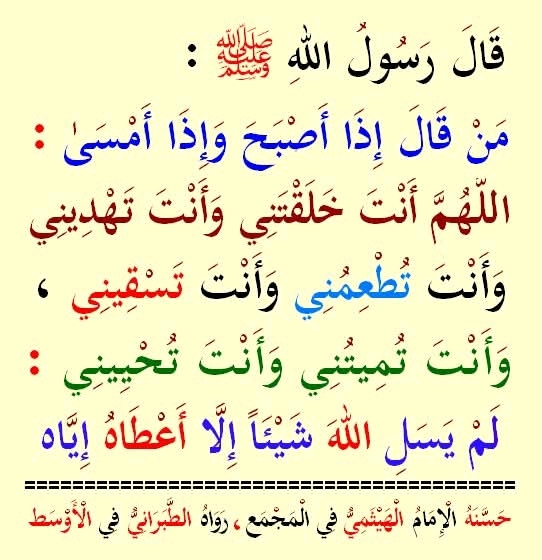 قَالَ رَسُولُ اللهِ ﷺ :
مَنْ قَالَ إِذَا أَصْبَحَ وَإِذَا أَمْسَىٰ :
اللّٰهُمَّ أَنْتَ خَلَقْتَنِي وَأَنْتَ تَهْدِينِي
وَأَنْتَ تُطْعِمُنِي وَأَنْتَ تَسْقِينِي ،
وَأَنْتَ تُمِيتُنِي وَأَنْتَ تُحْيِينِي :
لَمْ يَسَلِ اللهَ شَيْئَاً إِلَّا أَعْطَاهُ إِيَّاه
حَسَّنَهُ الْإِمَامُ الْهَيْثَمِيُّ فِي الْمَجْمَع ، رَوَاهُ الطَّبَرَانِيُّ فِي الْأَوْسَط